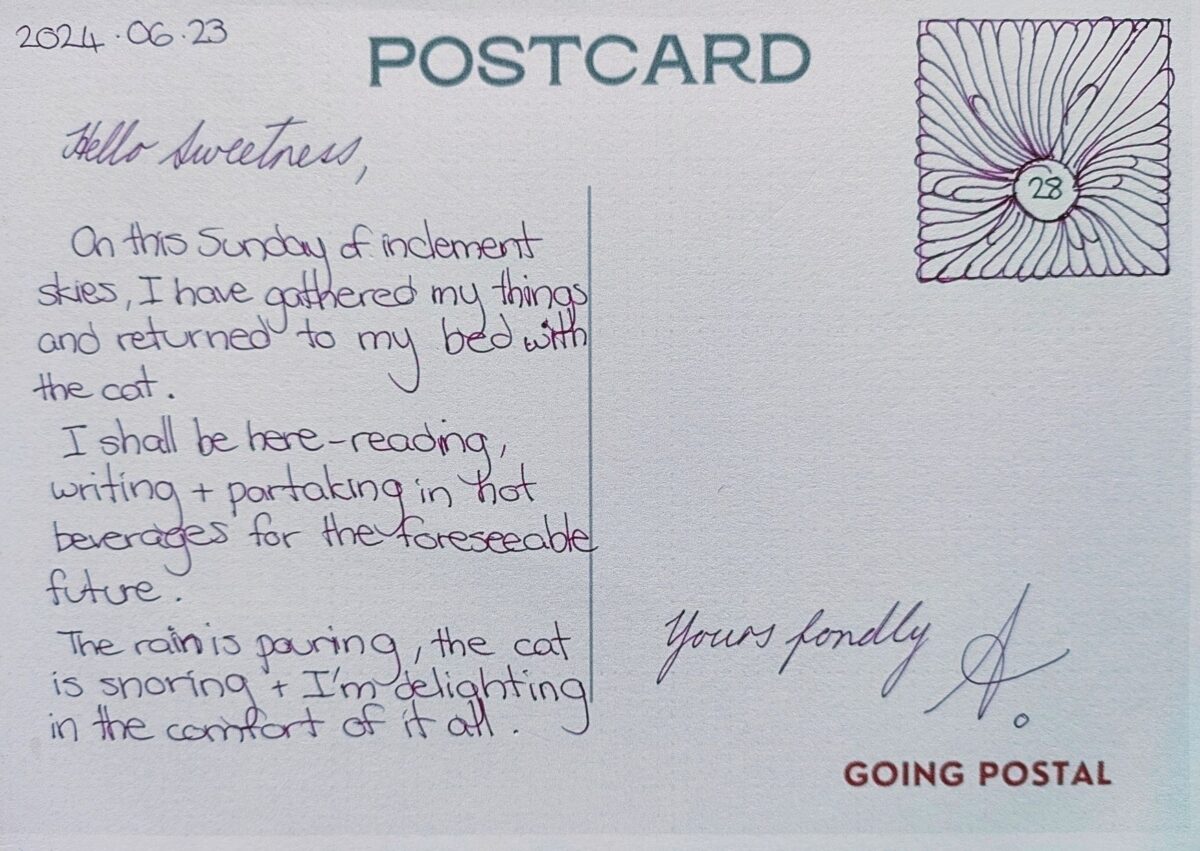 2024.06.23
POSTCARD
28
Hello Sweetness,
On this Sunday of inclement
skies, I have gathered my things
and returned to my bed with
the cat.
I shall be here - reading,
writing + partaking in hot
beverages for the foreseeable
future.
The rain is pouring, the cat
is snoring + I'm delighting
in the comfort of it all.
Yours fondly A.
GOING POSTAL